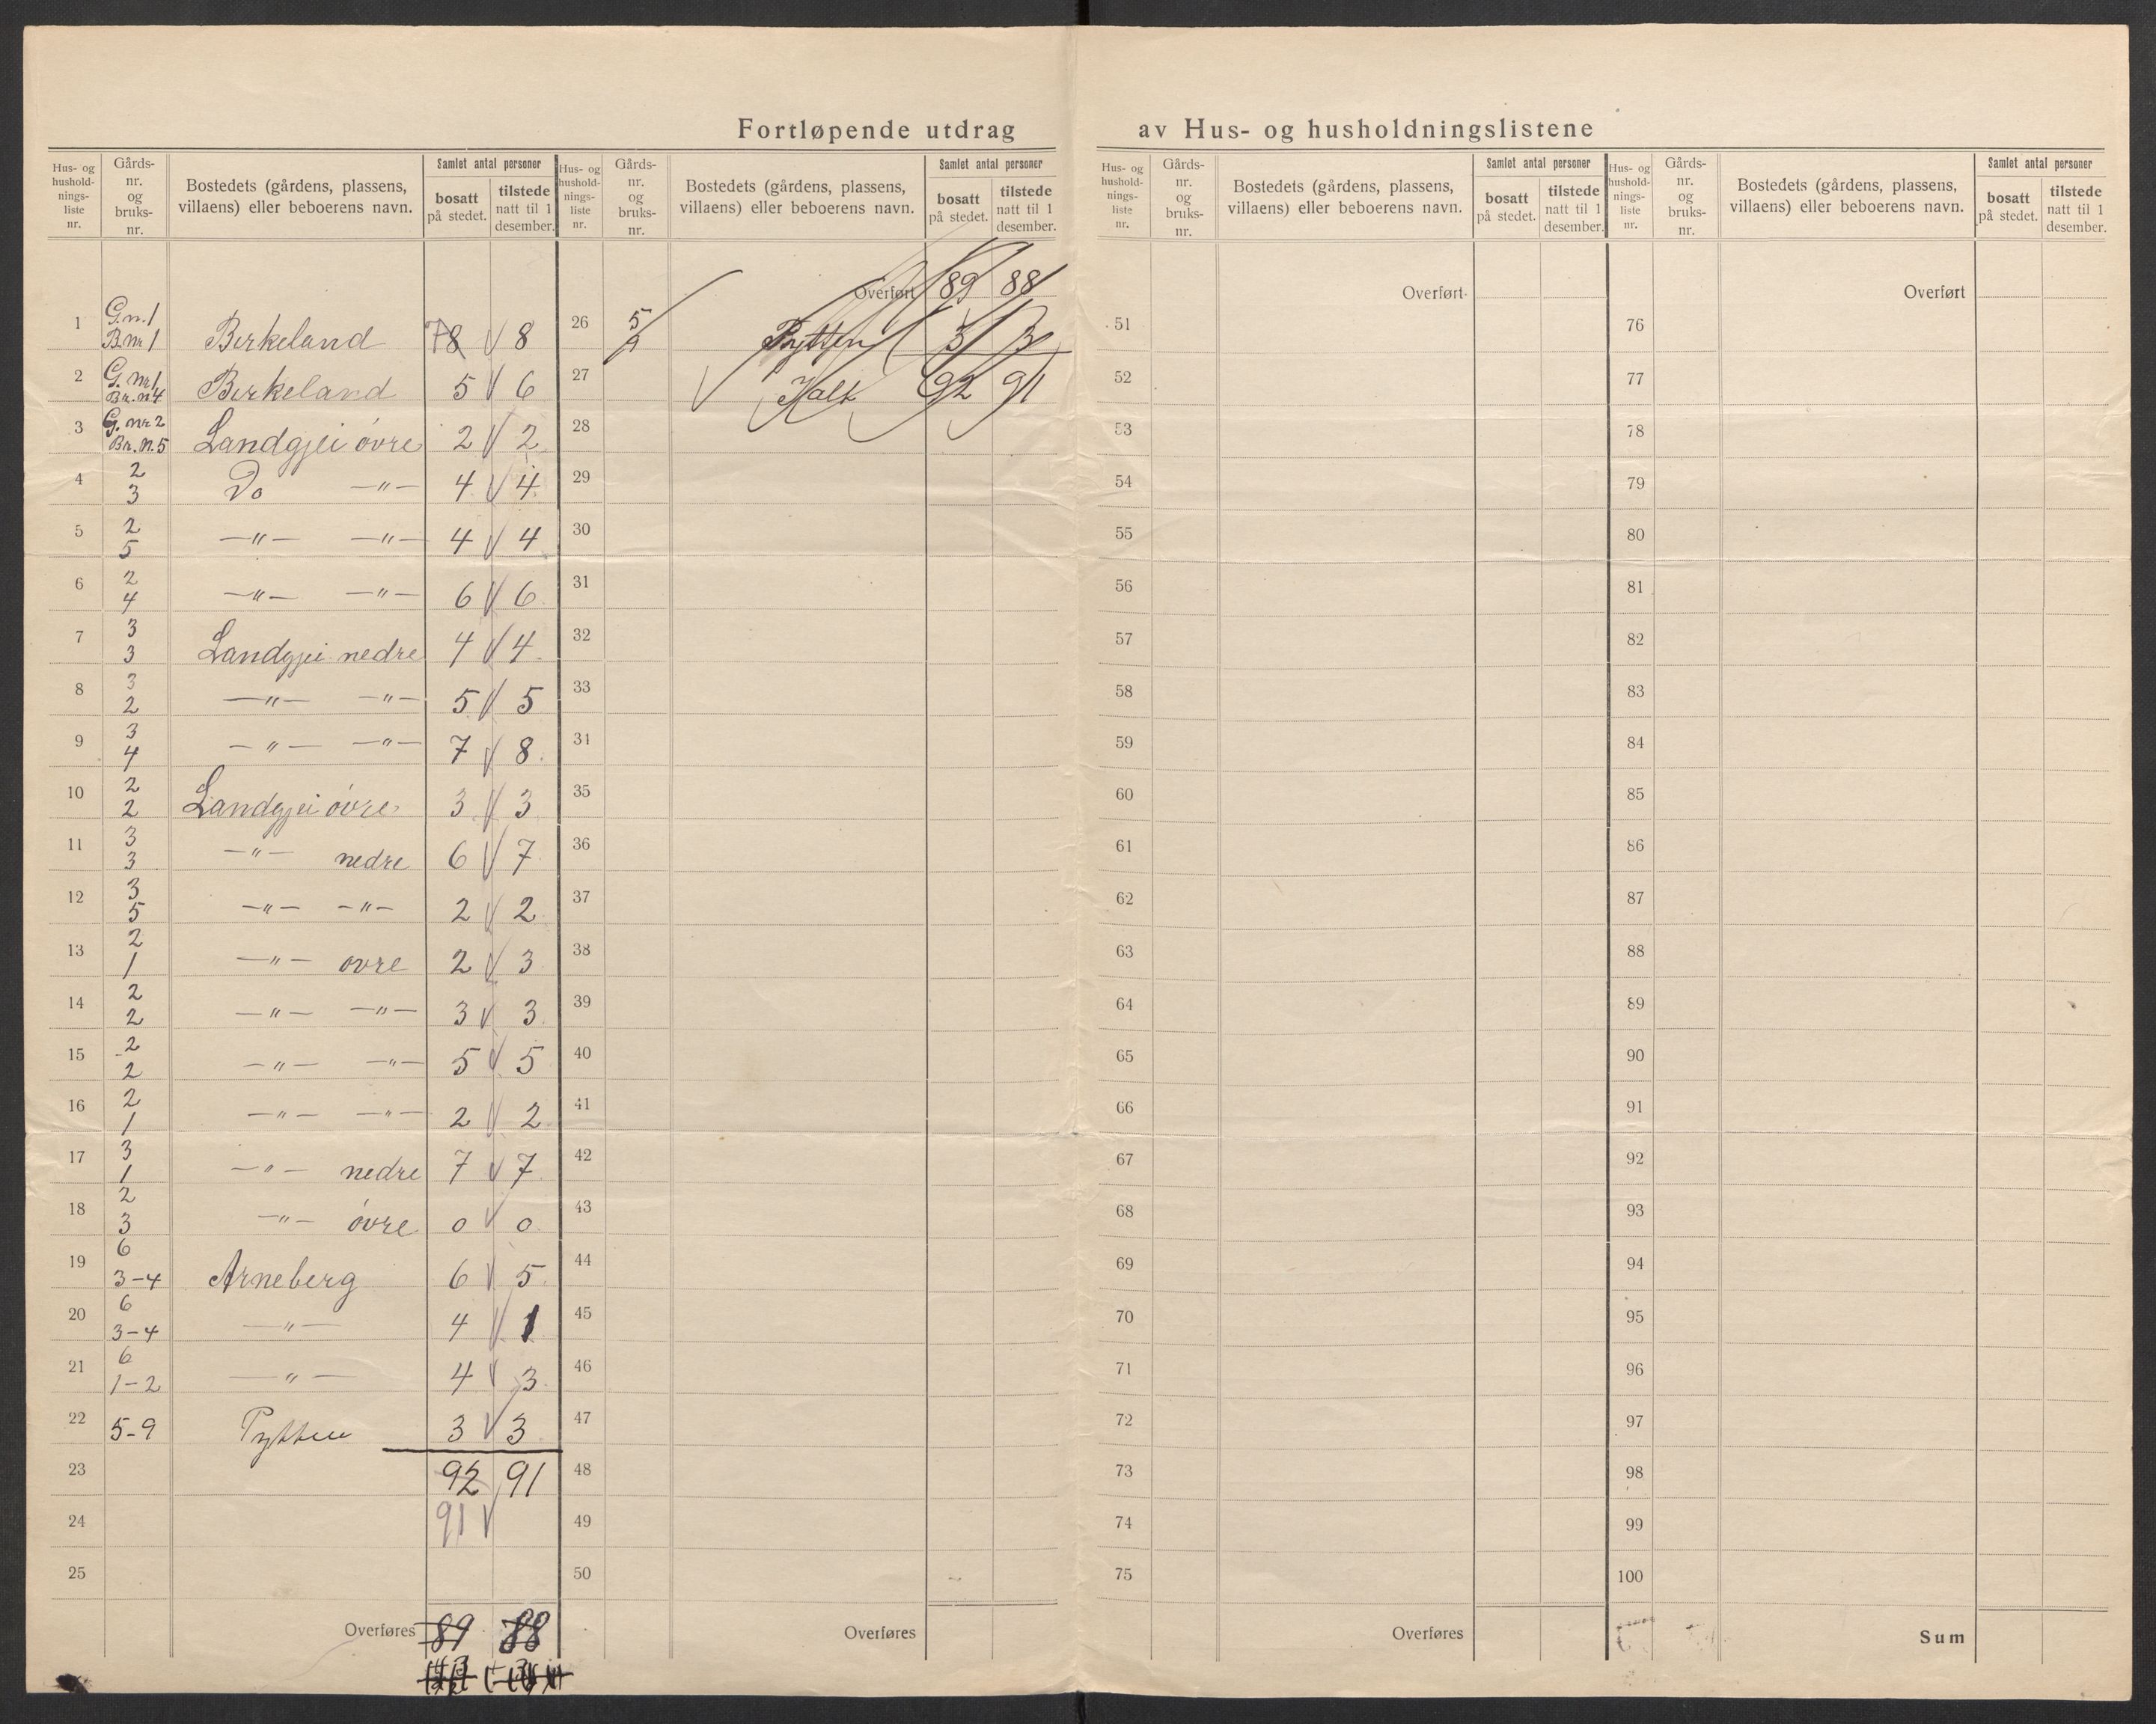 Fortløpende utdrag av Hus- og husholdningslistene
Hus- og hushold-nings-liste nr. | Gårds-nr. og bruks-nr. | Bostedets (gårdens, plassens, villaens) eller beboerens navn. | Samlet antal personer | bosatt på stedet. | tilstede natt til 1 desember.
Hus- og hushold-nings-liste nr. | Gårds-nr. og bruks-nr. | Bostedets (gårdens, plassens, villaens) eller beboerens navn. | Samlet antal personer | bosatt på stedet. | tilstede natt til 1 desember.
Hus- og hushold-nings-liste nr. | Gårds-nr. og bruks-nr. | Bostedets (gårdens, plassens, villaens) eller beboerens navn. | Samlet antal personer | bosatt på stedet. | tilstede natt til 1 desember.
Hus- og hushold-nings-liste nr. | Gårds-nr. og bruks-nr. | Bostedets (gårdens, plassens, villaens) eller beboerens navn. | Samlet antal personer | bosatt på stedet. | tilstede natt til 1 desember.
1 G.n. 1 B.nr 1 Birkeland 7 8 8
2 G. nr 1 Br. n 4 Birkeland 5 6
3 G. nr 2 Br. n. 5 Landgjei øvre 2 2
4 2 3 Do —"— 4 4
5 2 5 —"— —"— 4 4
6 2 4 —"— —"— 6 6
7 3 3 Landgjei nedre 4 4
8 3 2 —"— —"— 5 5
9 3 4 —"— —"— 7 8
10 2 2 Landgjei øvre 3 3
11 3 3 —"— nedre 6 7
12 3 5 —"— —"— 2 2
13 2 1 —"— øvre 2 3
14 2 2 —"— —"— 3 3
15 2 2 —"— —"— 5 5
16 2 1 —"— —"— 2 2
17 3 1 —"— nedre 7 7
18 2 3 —"— øvre 0 0
19 6 3-4 Arneberg 6 5
20 6 3-4 —"— 4 1
21 6 1-2 —"— 4 3
22 5-9 Pytten 3 3
23 92 91
24 91
25
Overføres 89 88
Overført 89 88
26 5 Pytten 3 3
27 92 91
28
29
30
31
32
33
31
35
36
37
38
39
40
41
42
43
44
45
46
47
48
49
50
Overføres
Overført
51
52
53
54
55
56
57
58
59
60
61
62
63
64
65
66
67
68
69
70
71
72
73
74
75
Overføres
Overført
76
77
78
79
80
81
82
83
84
85
86
87
88
89
90
91
92
93
94
95
96
97
98
99
100
Sum